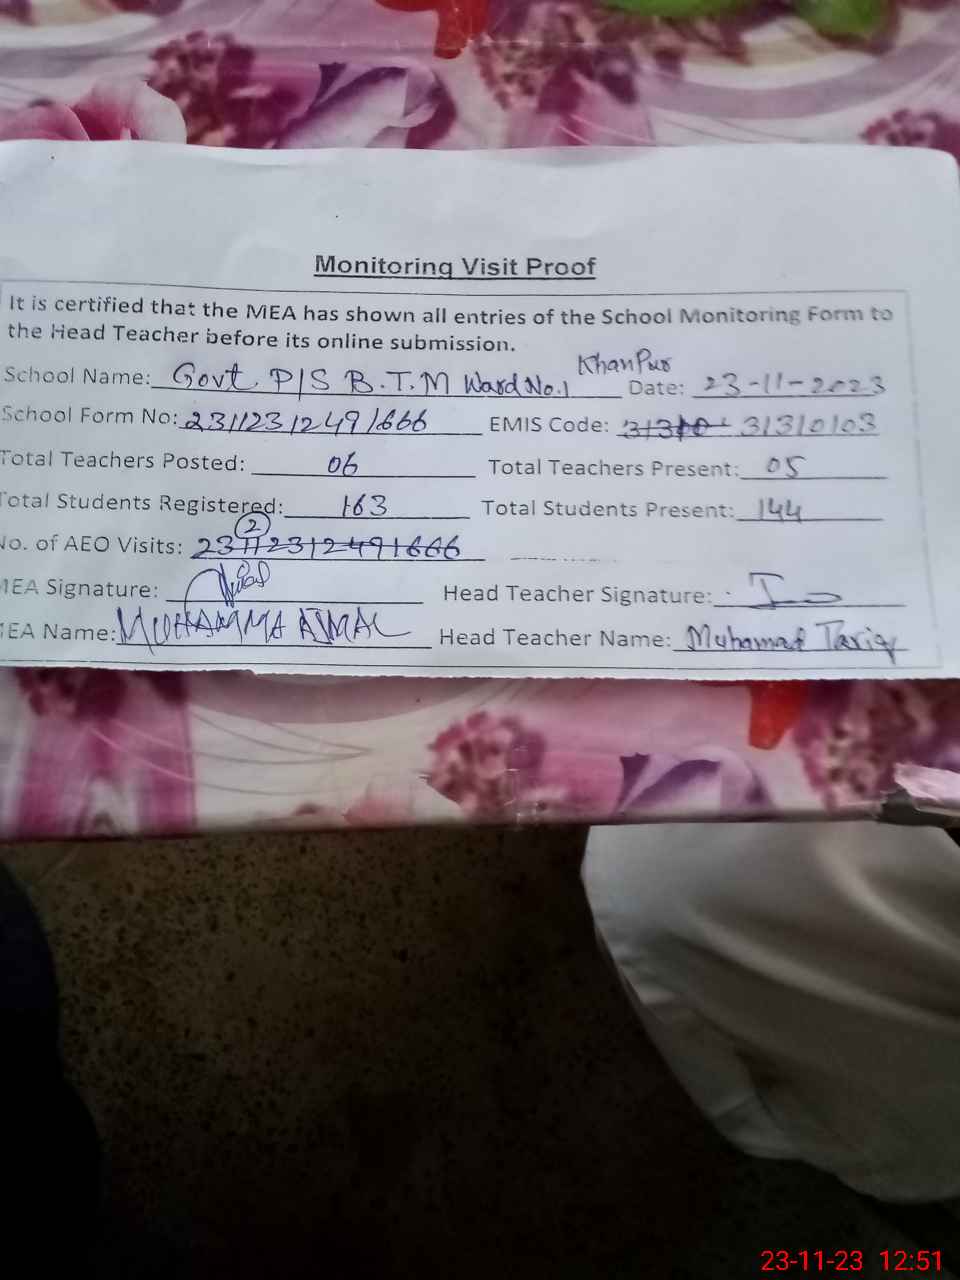 Monitoring Visit Proof
It is certified that the MEA has shown all entries of the School Monitoring Form to
the Head Teacher before its online submission.
KhanPur
School Name: Govt. P/S B.T.M Ward No.1 Date: 23-11-2023
School Form No: 23112312491666 EMIS Code: 31310103
Total Teachers Posted: 06 Total Teachers Present: 05
Total Students Registered: 163 Total Students Present: 144
2
No. of AEO Visits: 23112312491666
MEA Signature: Head Teacher Signature:
MEA Name: MUHAMMA AJMAL Head Teacher Name: Muhamad Tariq
23-11-23 12:51